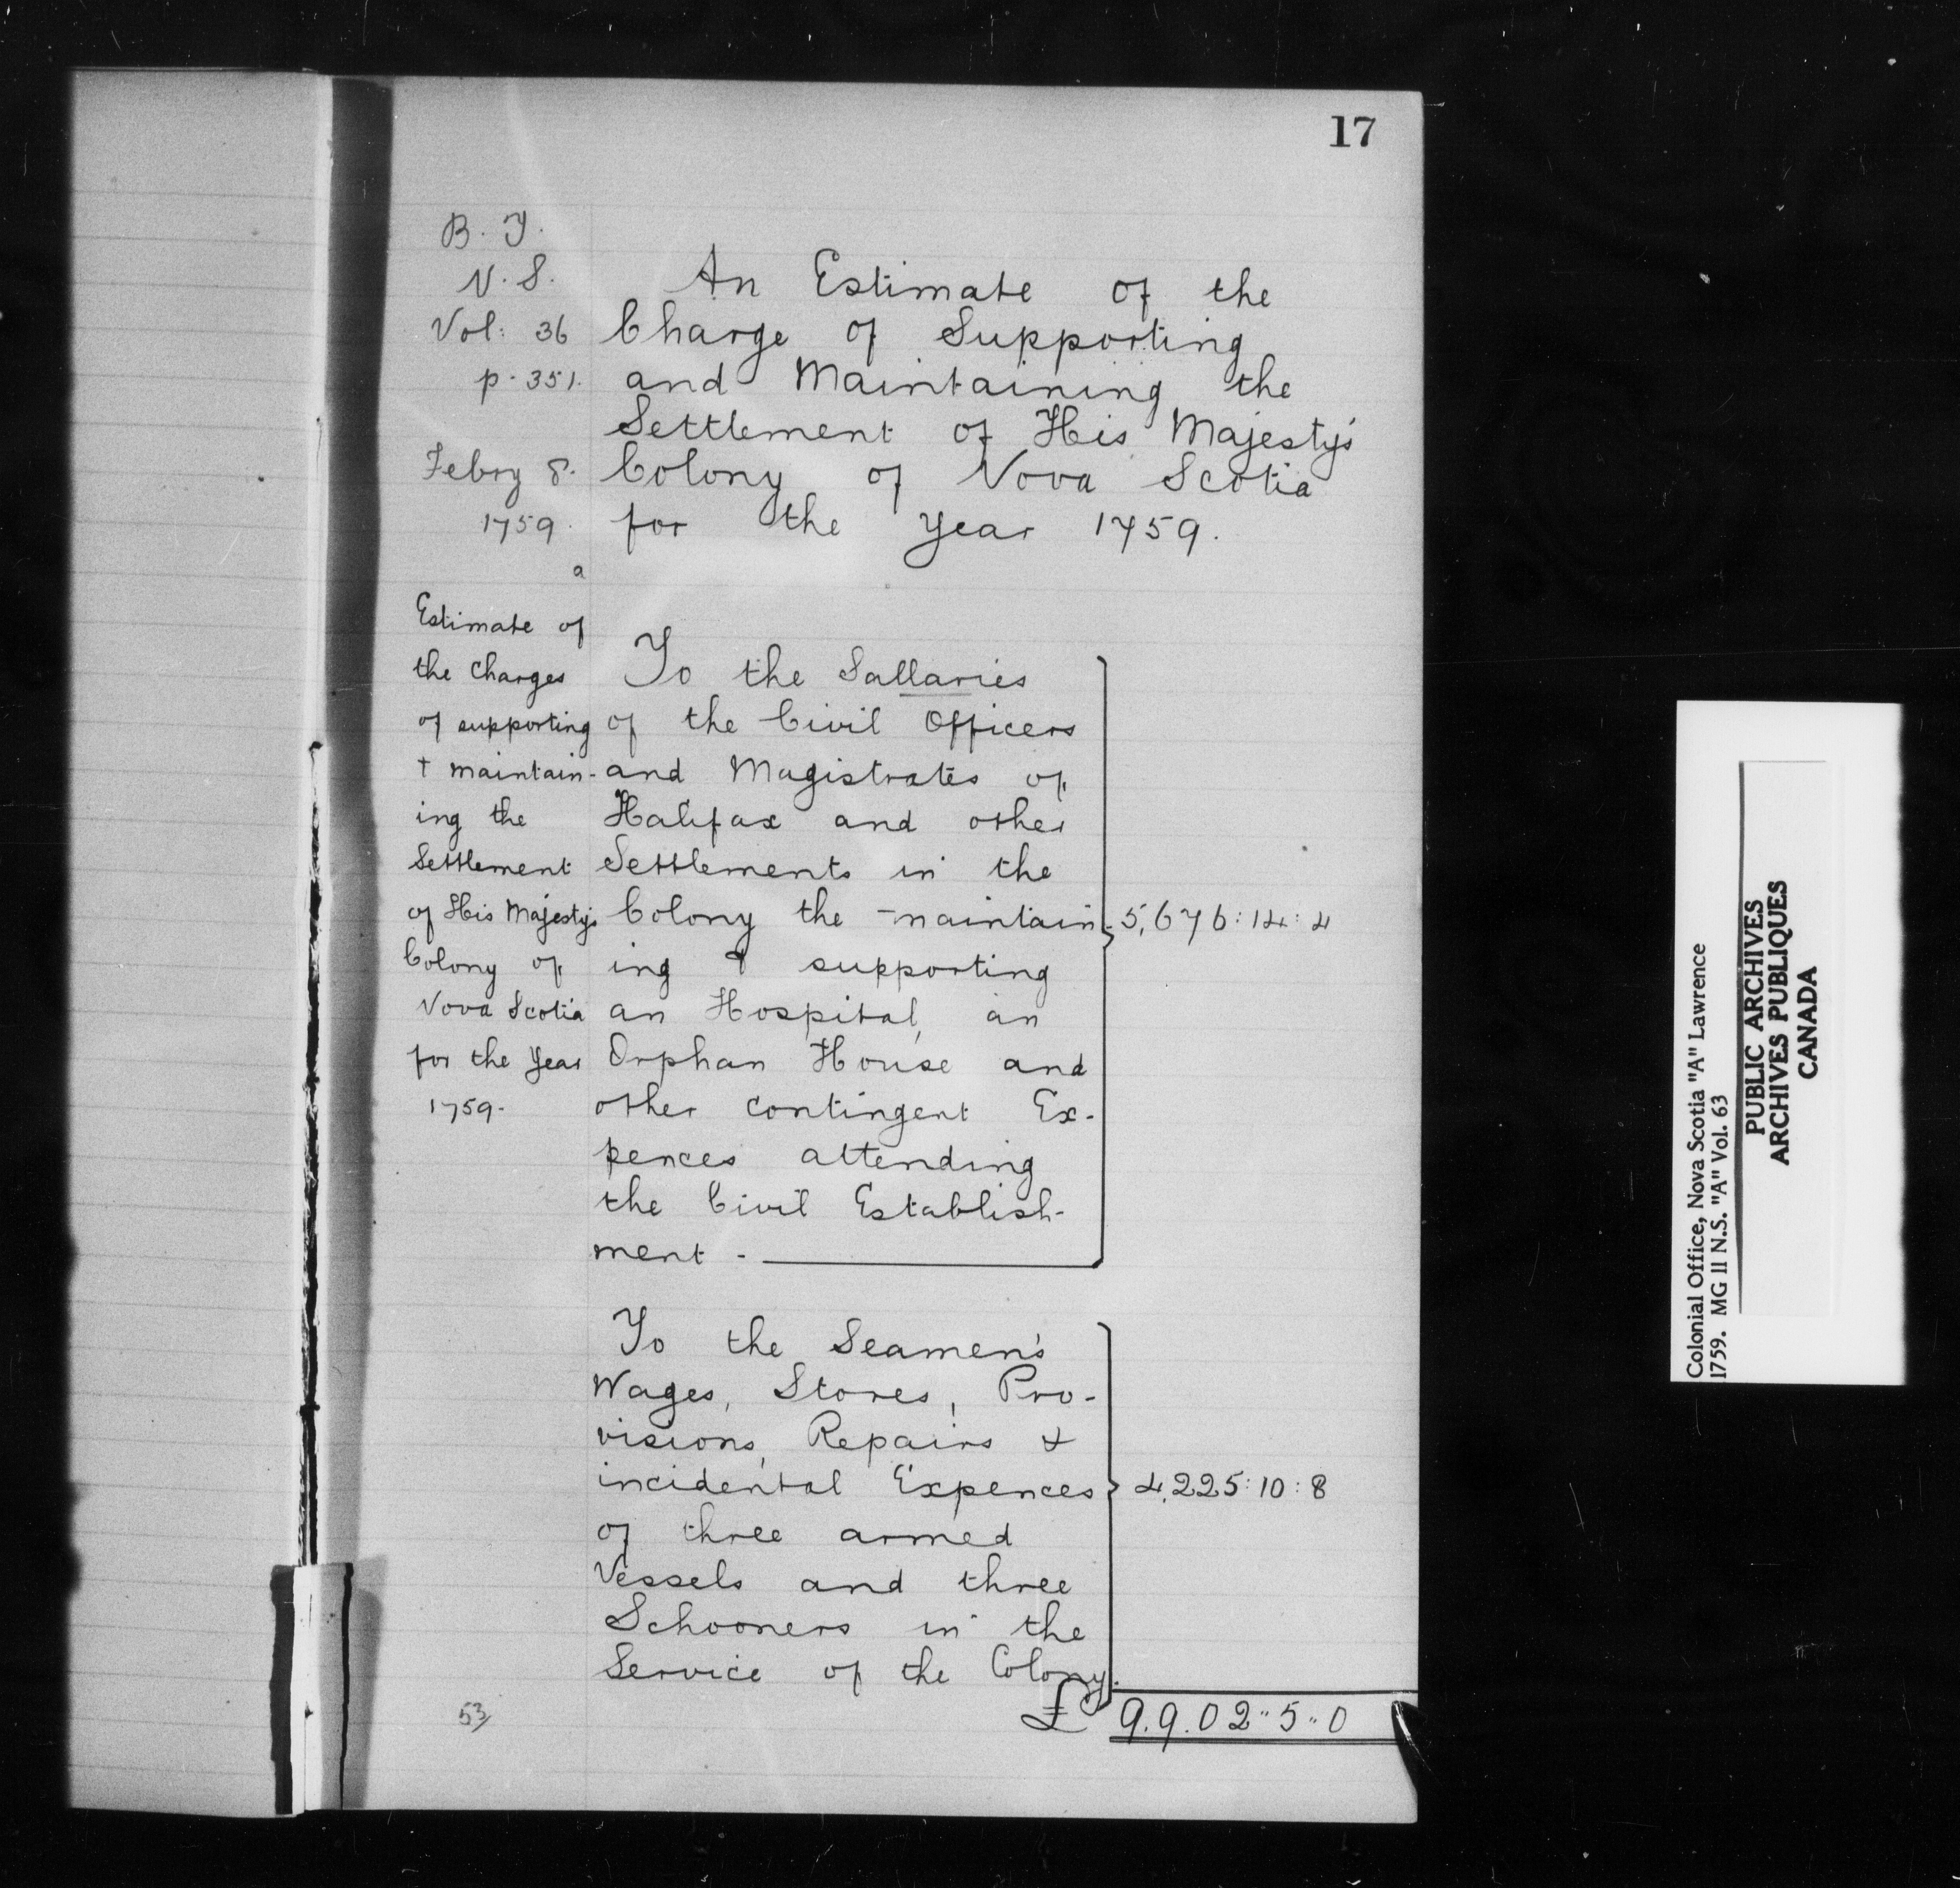 17
B. T.
N. S.
Vol: 36
p. 351.
Febry 8.
1759.
a
Estimate of
the Charges
of supporting
+ maintain-
ing the
Settlement
of His Majesty's
Colony of
Nova Scotia
for the Year
1759.
An Estimate of the
Charge of Supporting
and Maintaining the
Settlement of His Majesty's
Colony of Nova Scotia
for the Year 1759.
To the Sallaries
of the Civil Officers
and Magistrates of
Halifax and other
Settlements in the
Colony the maintain- 5,676:14:4
ing & supporting
an Hospital, an
Orphan House and
other contingent Ex-
pences attending
the Civil Establish-
ment -
To the Seamen's
Wages, Stores, Pro-
visions, Repairs &
incidental Expences 4,225:10:8
of three armed
Vessels and three
Schooners in the
Service of the Colony.
£ 9.9.02"5"0
53/
Colonial Office, Nova Scotia "A" Lawrence
1759. MG 11 N.S. "A" Vol. 63
PUBLIC ARCHIVES
ARCHIVES PUBLIQUES
CANADA